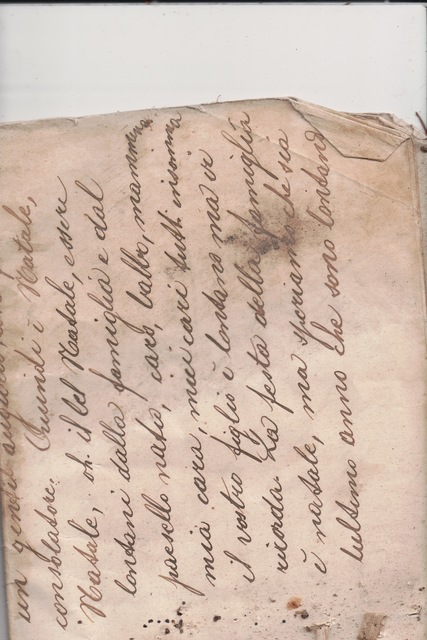 un
consolatore. Quindi è Natale,
Natale, oh. il bel Natale, essere
lontani dalla famiglia e dal
paesello natio, caro babbo, mamma
mia cara, miei cari tutti insomma
il vostro figlio è lontano ma vi
ricorda. La festa della famiglia
è natale, ma speriamo che sia
lultimo anno che sono lontano